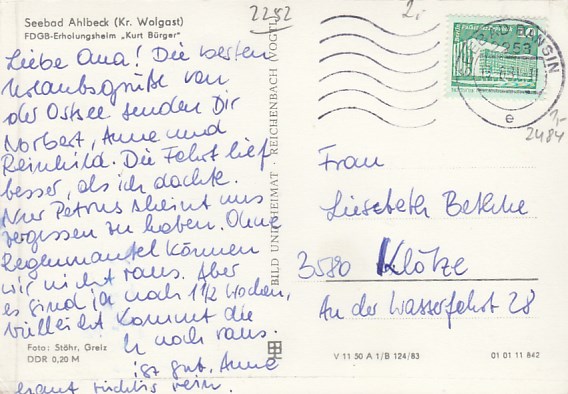 Seebad Ahlbeck (Kr. Wolgast)
FDGB-Erholungsheim „Kurt Bürger"
2252
2,-
Liebe Oma! Die besten
Urlaubsgrüße von
der Ostsee senden Dir
Norbert, Anne und
Reinhild. Die Fahrt lief
besser, als ich dachte.
Nur Petrus scheint uns
vergessen zu haben. Ohne
Regenmantel können
wir nicht raus. Aber
es sind ja noch 1½ Wochen,
vielleicht kommt die
noch raus.
ist gut, Anne
haut richtig rein.
Foto: Stöhr, Greiz
DDR 0,20 M
BILD UND HEIMAT · REICHENBACH (VOGTL
BANSIN
2253
e
1,-
2484
Frau
Liesbeth Bethke
3580 Klötze
An der Wasserfahrt 28
V 11 50 A 1/B 124/83
01 01 11 842